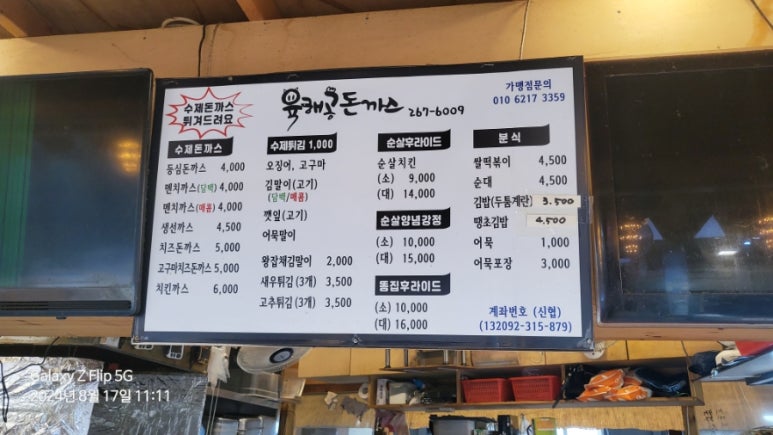 수제돈까스
튀겨드려요
육해공돈까스 267-6009
가맹점문의
010 6217 3359
수제돈까스
등심돈까스 4,000
멘치까스(담백) 4,000
멘치까스(매콤) 4,000
생선까스 4,500
치즈돈까스 5,000
고구마치즈돈까스 5,000
치킨까스 6,000
수제튀김 1,000
오징어, 고구마
김말이(고기)
(담백/매콤)
깻잎(고기)
어묵말이
왕잡채김말이 2,000
새우튀김(3개) 3,500
고추튀김(3개) 3,500
순살후라이드
순살치킨
(소) 9,000
(대) 14,000
순살양념강정
(소) 10,000
(대) 15,000
똥집후라이드
(소) 10,000
(대) 16,000
분식
쌀떡볶이 4,500
순대 4,500
김밥(두툼계란) 3.500
땡초김밥 4.500
어묵 1,000
어묵포장 3,000
계좌번호 (신협)
(132092-315-879)
Galaxy Z Flip 5G
2024년 8월 17일 11:11